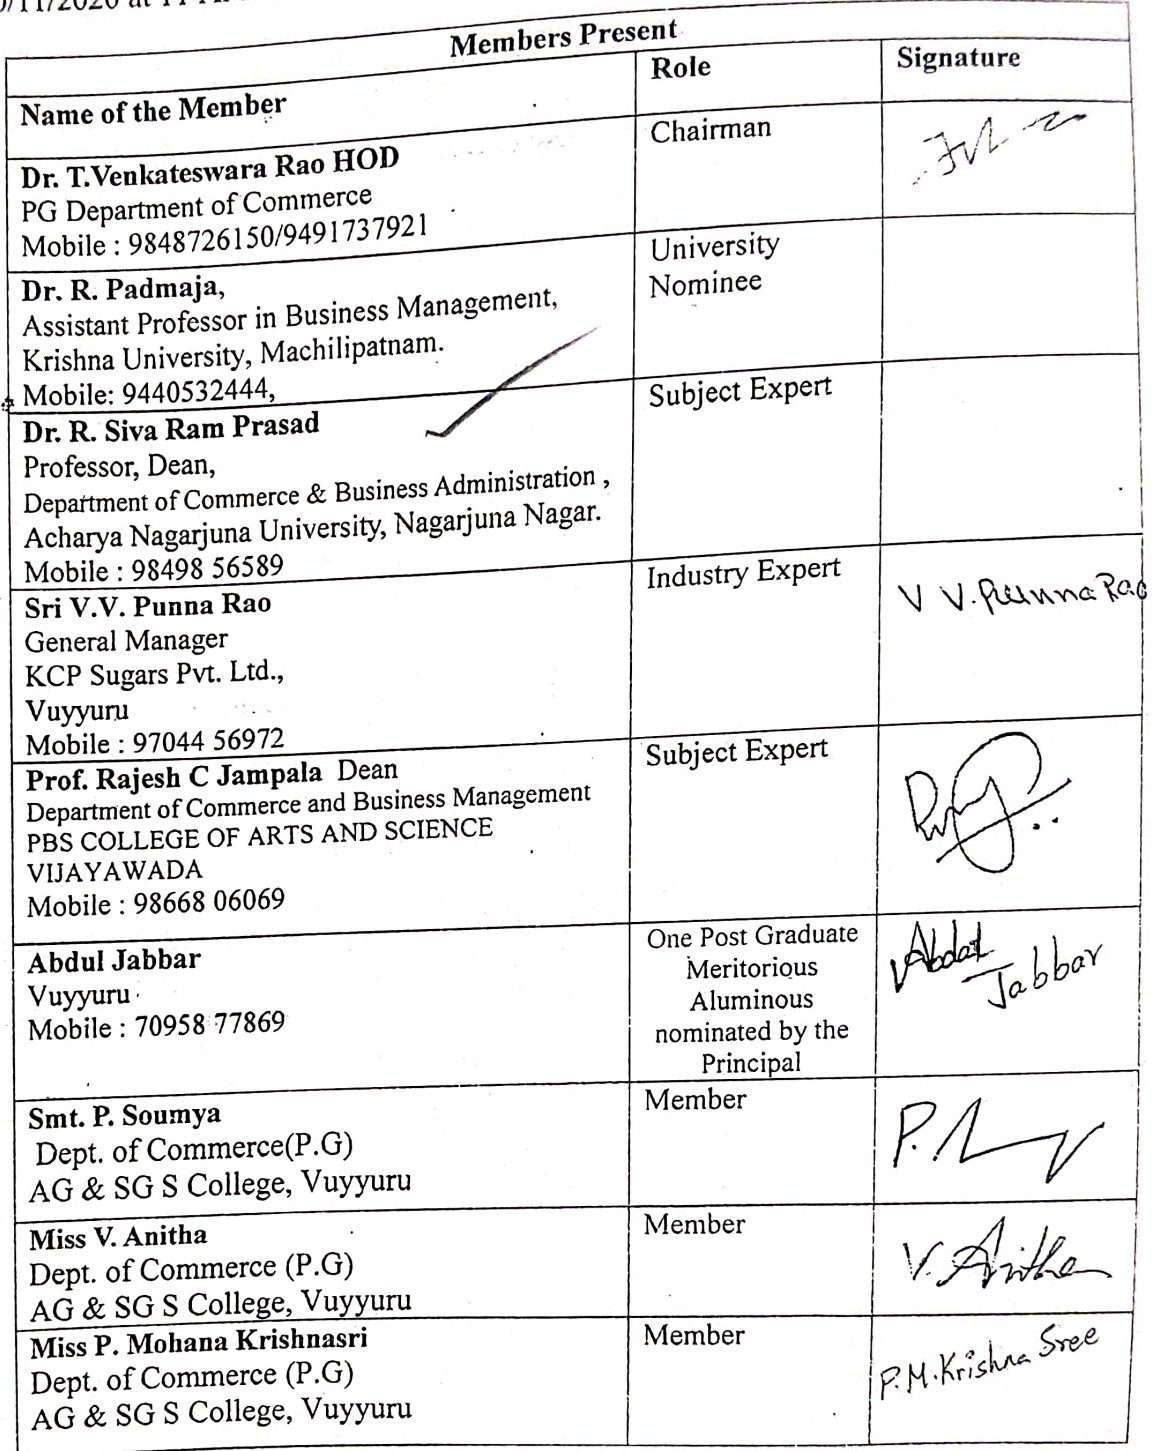 Members Present
Name of the Member
Role
Signature
Dr. T.Venkateswara Rao HOD
PG Department of Commerce
Mobile : 9848726150/9491737921
Chairman
Dr. R. Padmaja,
Assistant Professor in Business Management,
Krishna University, Machilipatnam.
Mobile: 9440532444,
University
Nominee
Dr. R. Siva Ram Prasad
Professor, Dean,
Department of Commerce & Business Administration ,
Acharya Nagarjuna University, Nagarjuna Nagar.
Mobile : 98498 56589
Subject Expert
Sri V.V. Punna Rao
General Manager
KCP Sugars Pvt. Ltd.,
Vuyyuru
Mobile : 97044 56972
Industry Expert
V V. Punna Rao
Prof. Rajesh C Jampala Dean
Department of Commerce and Business Management
PBS COLLEGE OF ARTS AND SCIENCE
VIJAYAWADA
Mobile : 98668 06069
Subject Expert
Abdul Jabbar
Vuyyuru
Mobile : 70958 77869
One Post Graduate
Meritorious
Aluminous
nominated by the
Principal
Abdul
Jabbar
Smt. P. Soumya
Dept. of Commerce(P.G)
AG & SG S College, Vuyyuru
Member
Miss V. Anitha
Dept. of Commerce (P.G)
AG & SG S College, Vuyyuru
Member
V. Anitha
Miss P. Mohana Krishnasri
Dept. of Commerce (P.G)
AG & SG S College, Vuyyuru
Member
P.M.Krishna Sree